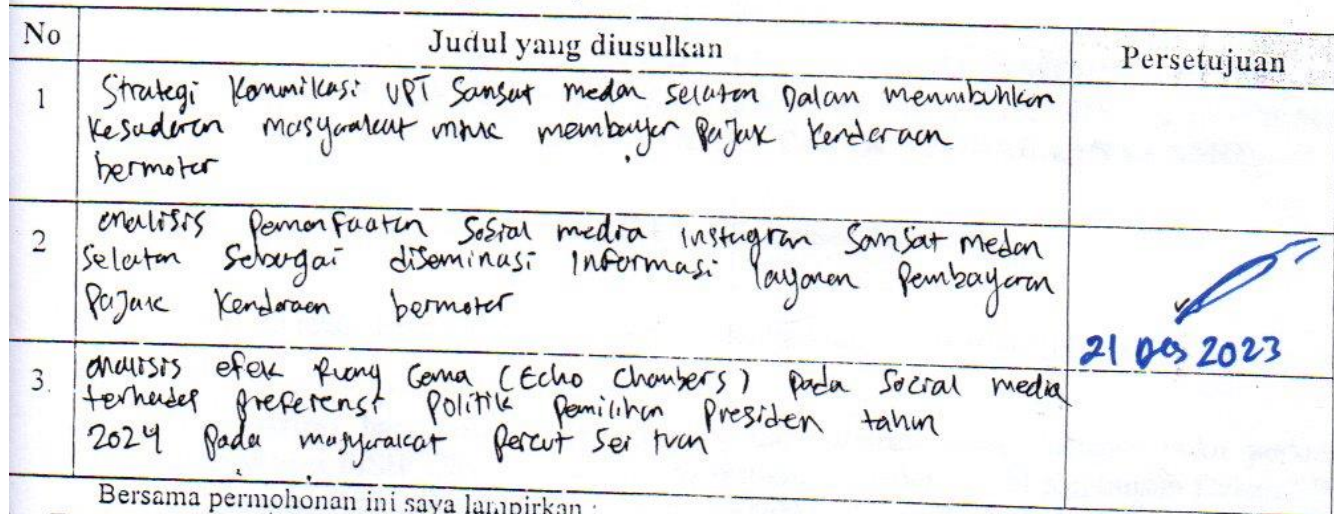 No Judul yang diusulkan Persetujuan
1 Strategi Komunikasi UPT Samsat medan selatan Dalam menumbuhkan
kesadaran masyarakat untuk membayar Pajak kendaraan
bermotor
2 analisis Pemanfaatan Sosial media instagram Samsat medan
selatan Sebagai diseminasi informasi layanan Pembayaran
Pajak Kendaraan bermotor
21 Des 2023
3. analisis efek Ruang Gema (Echo Chambers) Pada Social media
terhadap preferensi Politik Pemilihan Presiden tahun
2024 Pada masyarakat Percut Sei tuan
Bersama permohonan ini saya lampirkan :